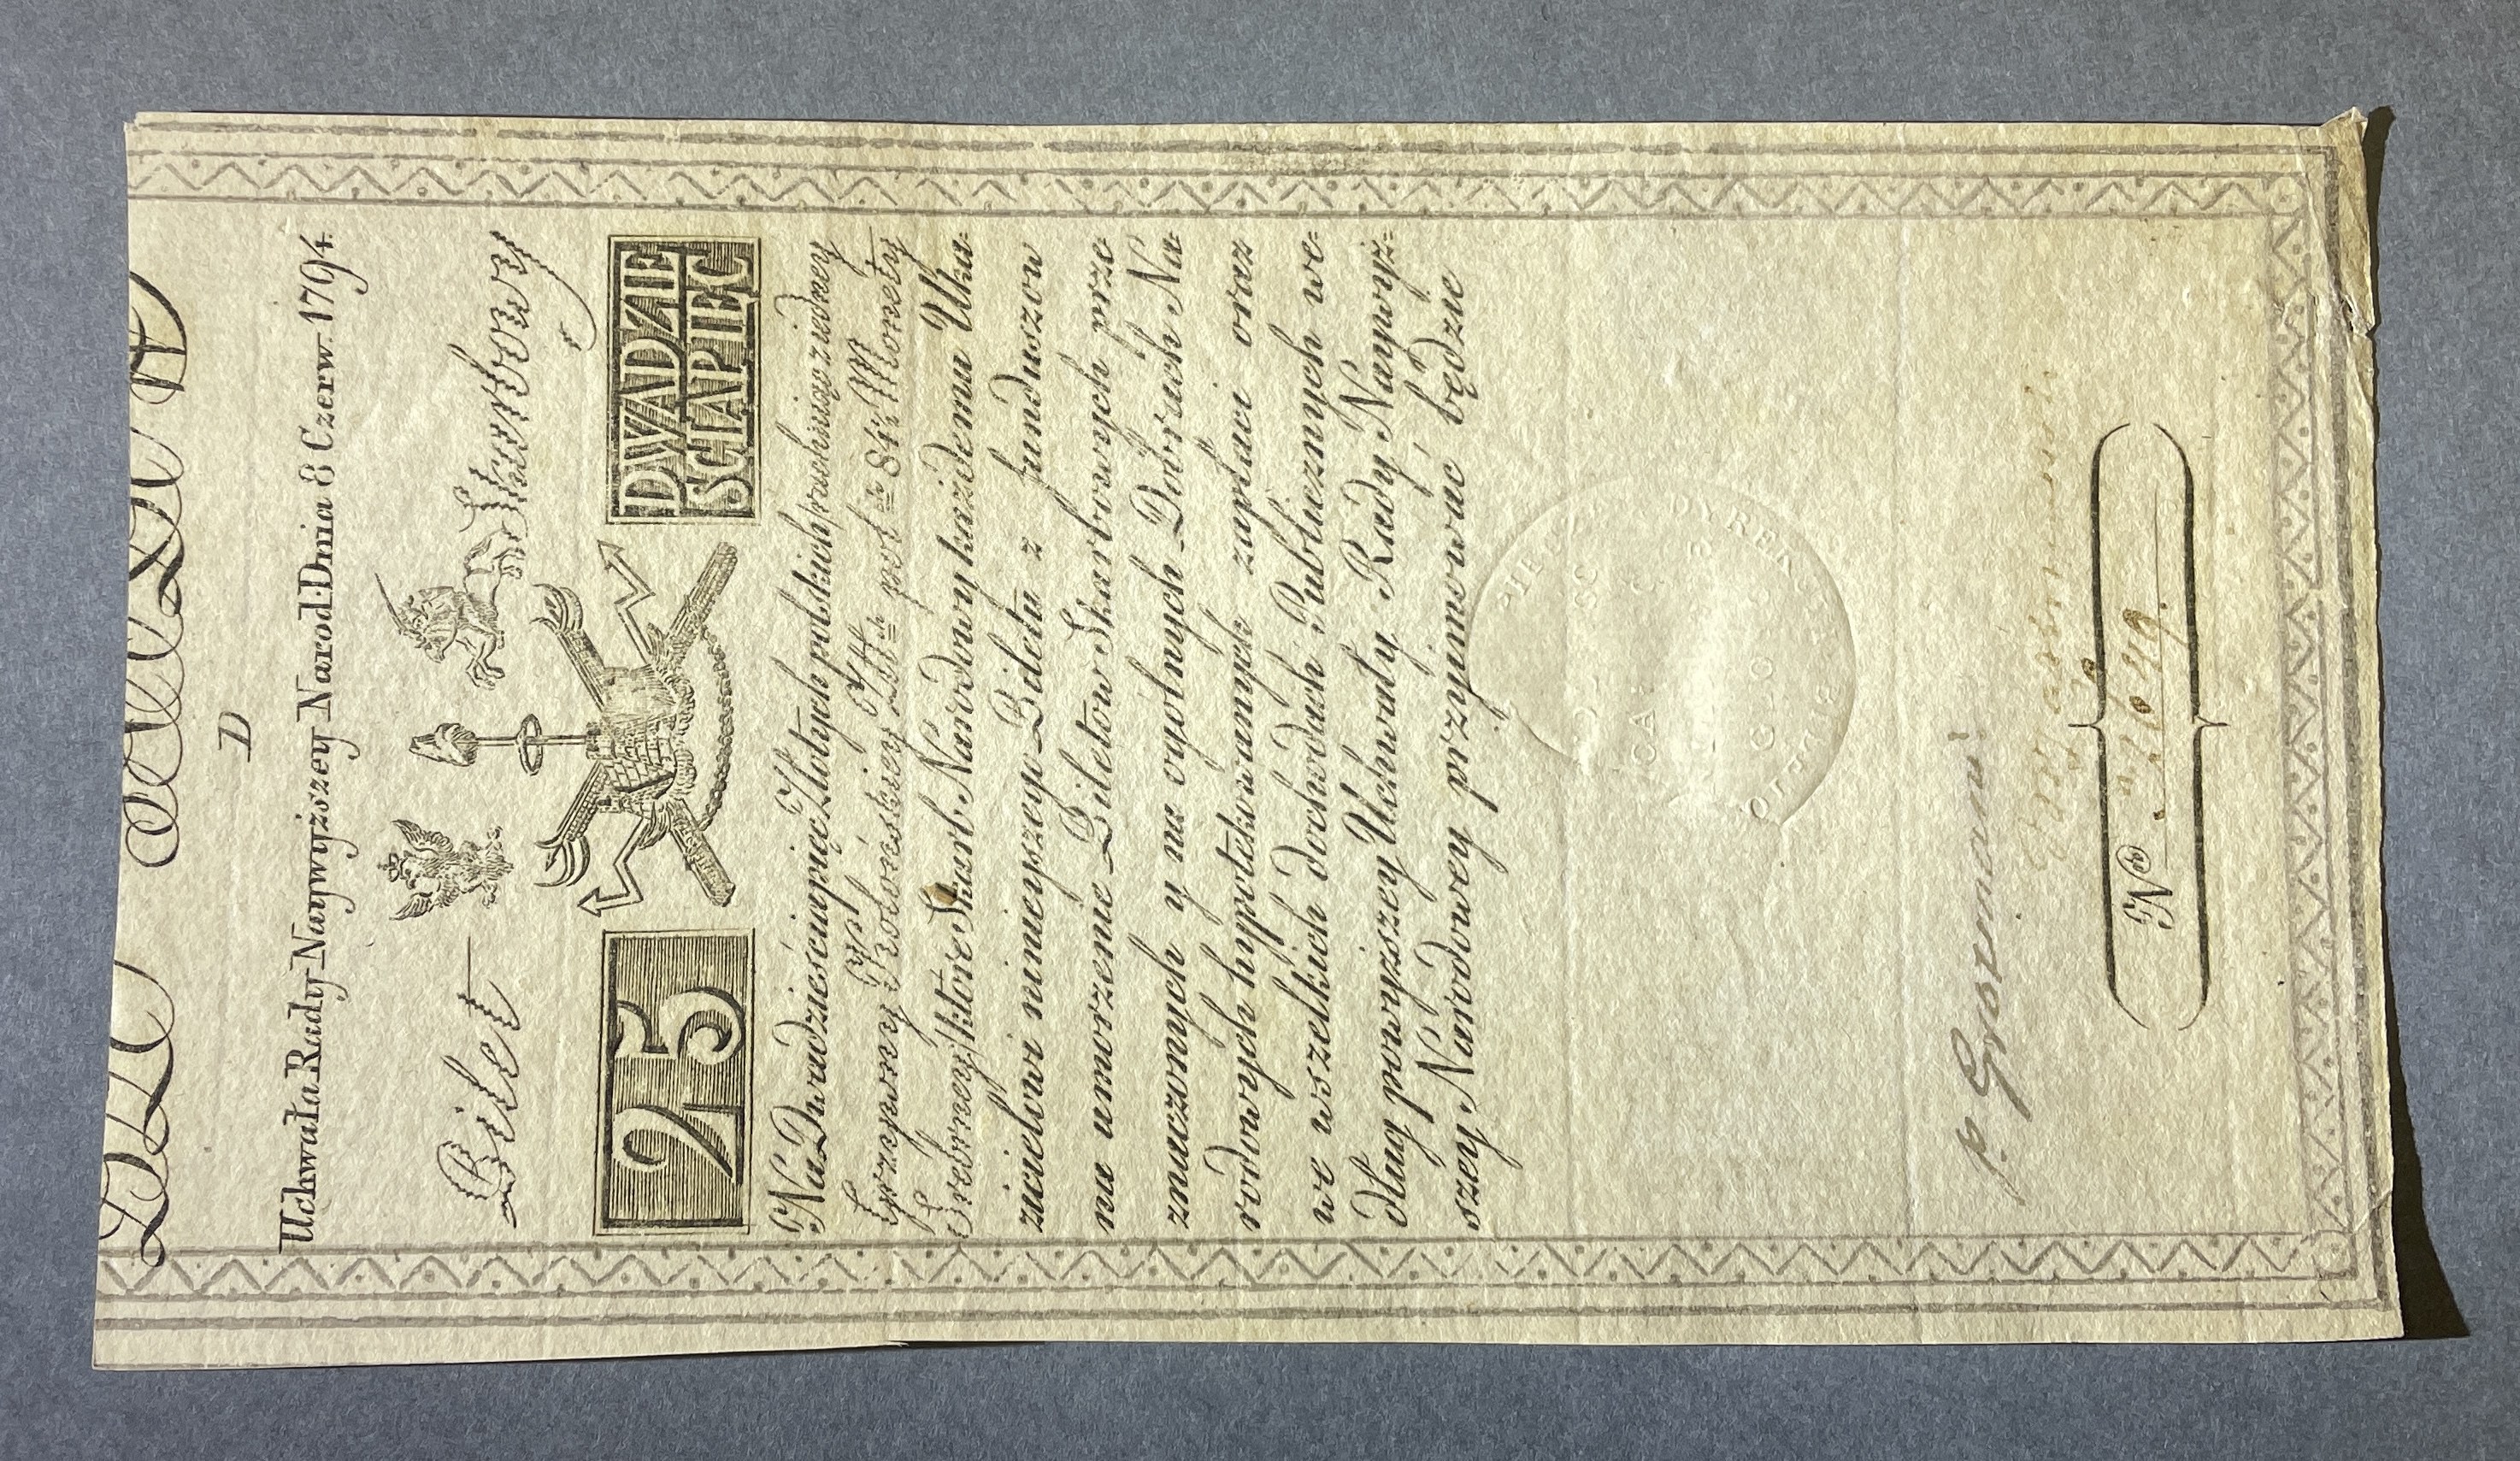 D
Uchwała Rady Naywyższey Narod: Dnia 8 Czerw: 1794.
Bilet Skarbowy
25
DWADZIE
SCIAPIĘC
Na Dwadzieściapięć Złotych polskich /rachuiąc z iedney
Grzywny Kolońskiey Złłch pol:ch 84½ Monety
Srebrney/ które Skarb Narodowy każdemu Uka-
zicielowi ninieyszego Biletu z funduszow
na umorzenie Biletow Skarbowych prze
znaczonych y na ogolnych Dobrach Na-
rodowych hypotekowanych zapłaci oraz
we wszelkich dochodach Publicznych we-
dług powyższey Uchwały Rady Naywyż-
szey Narodowey przyimować będzie
DY REK: SKAR BILETO
p. Grosmani
No 2649.